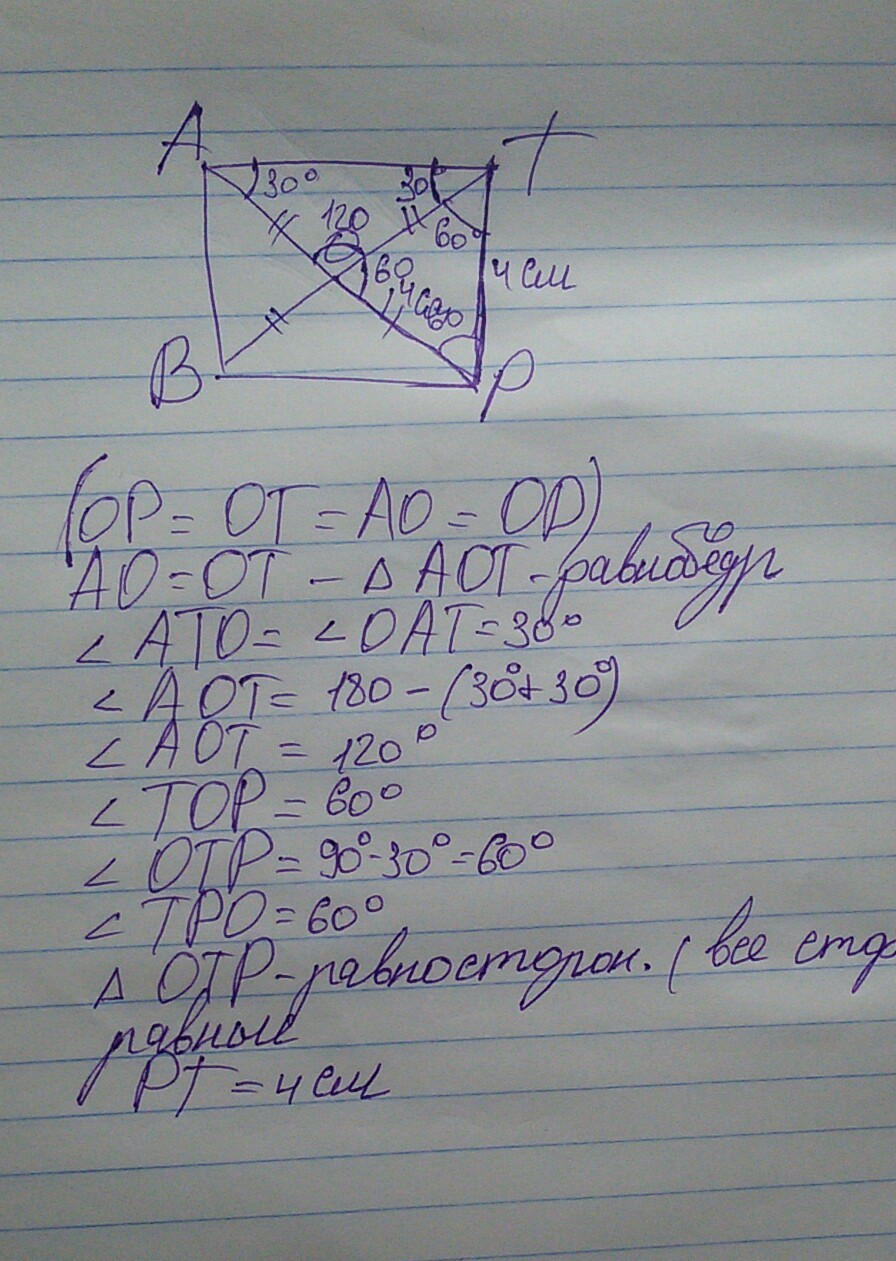 A T
30° 30°
120 60°
60 4 см
4 см 60
B P
(OP = OT = AO = OD)
AO = OT - △ AOT - равнобедр
∠ ATO = ∠ OAT = 30°
∠ AOT = 180 - (30° + 30°)
∠ AOT = 120°
∠ TOP = 60°
∠ OTP = 90° - 30° = 60°
∠ TPO = 60°
△ OTP - равносторон. ( все сто
равны
PT = 4 см